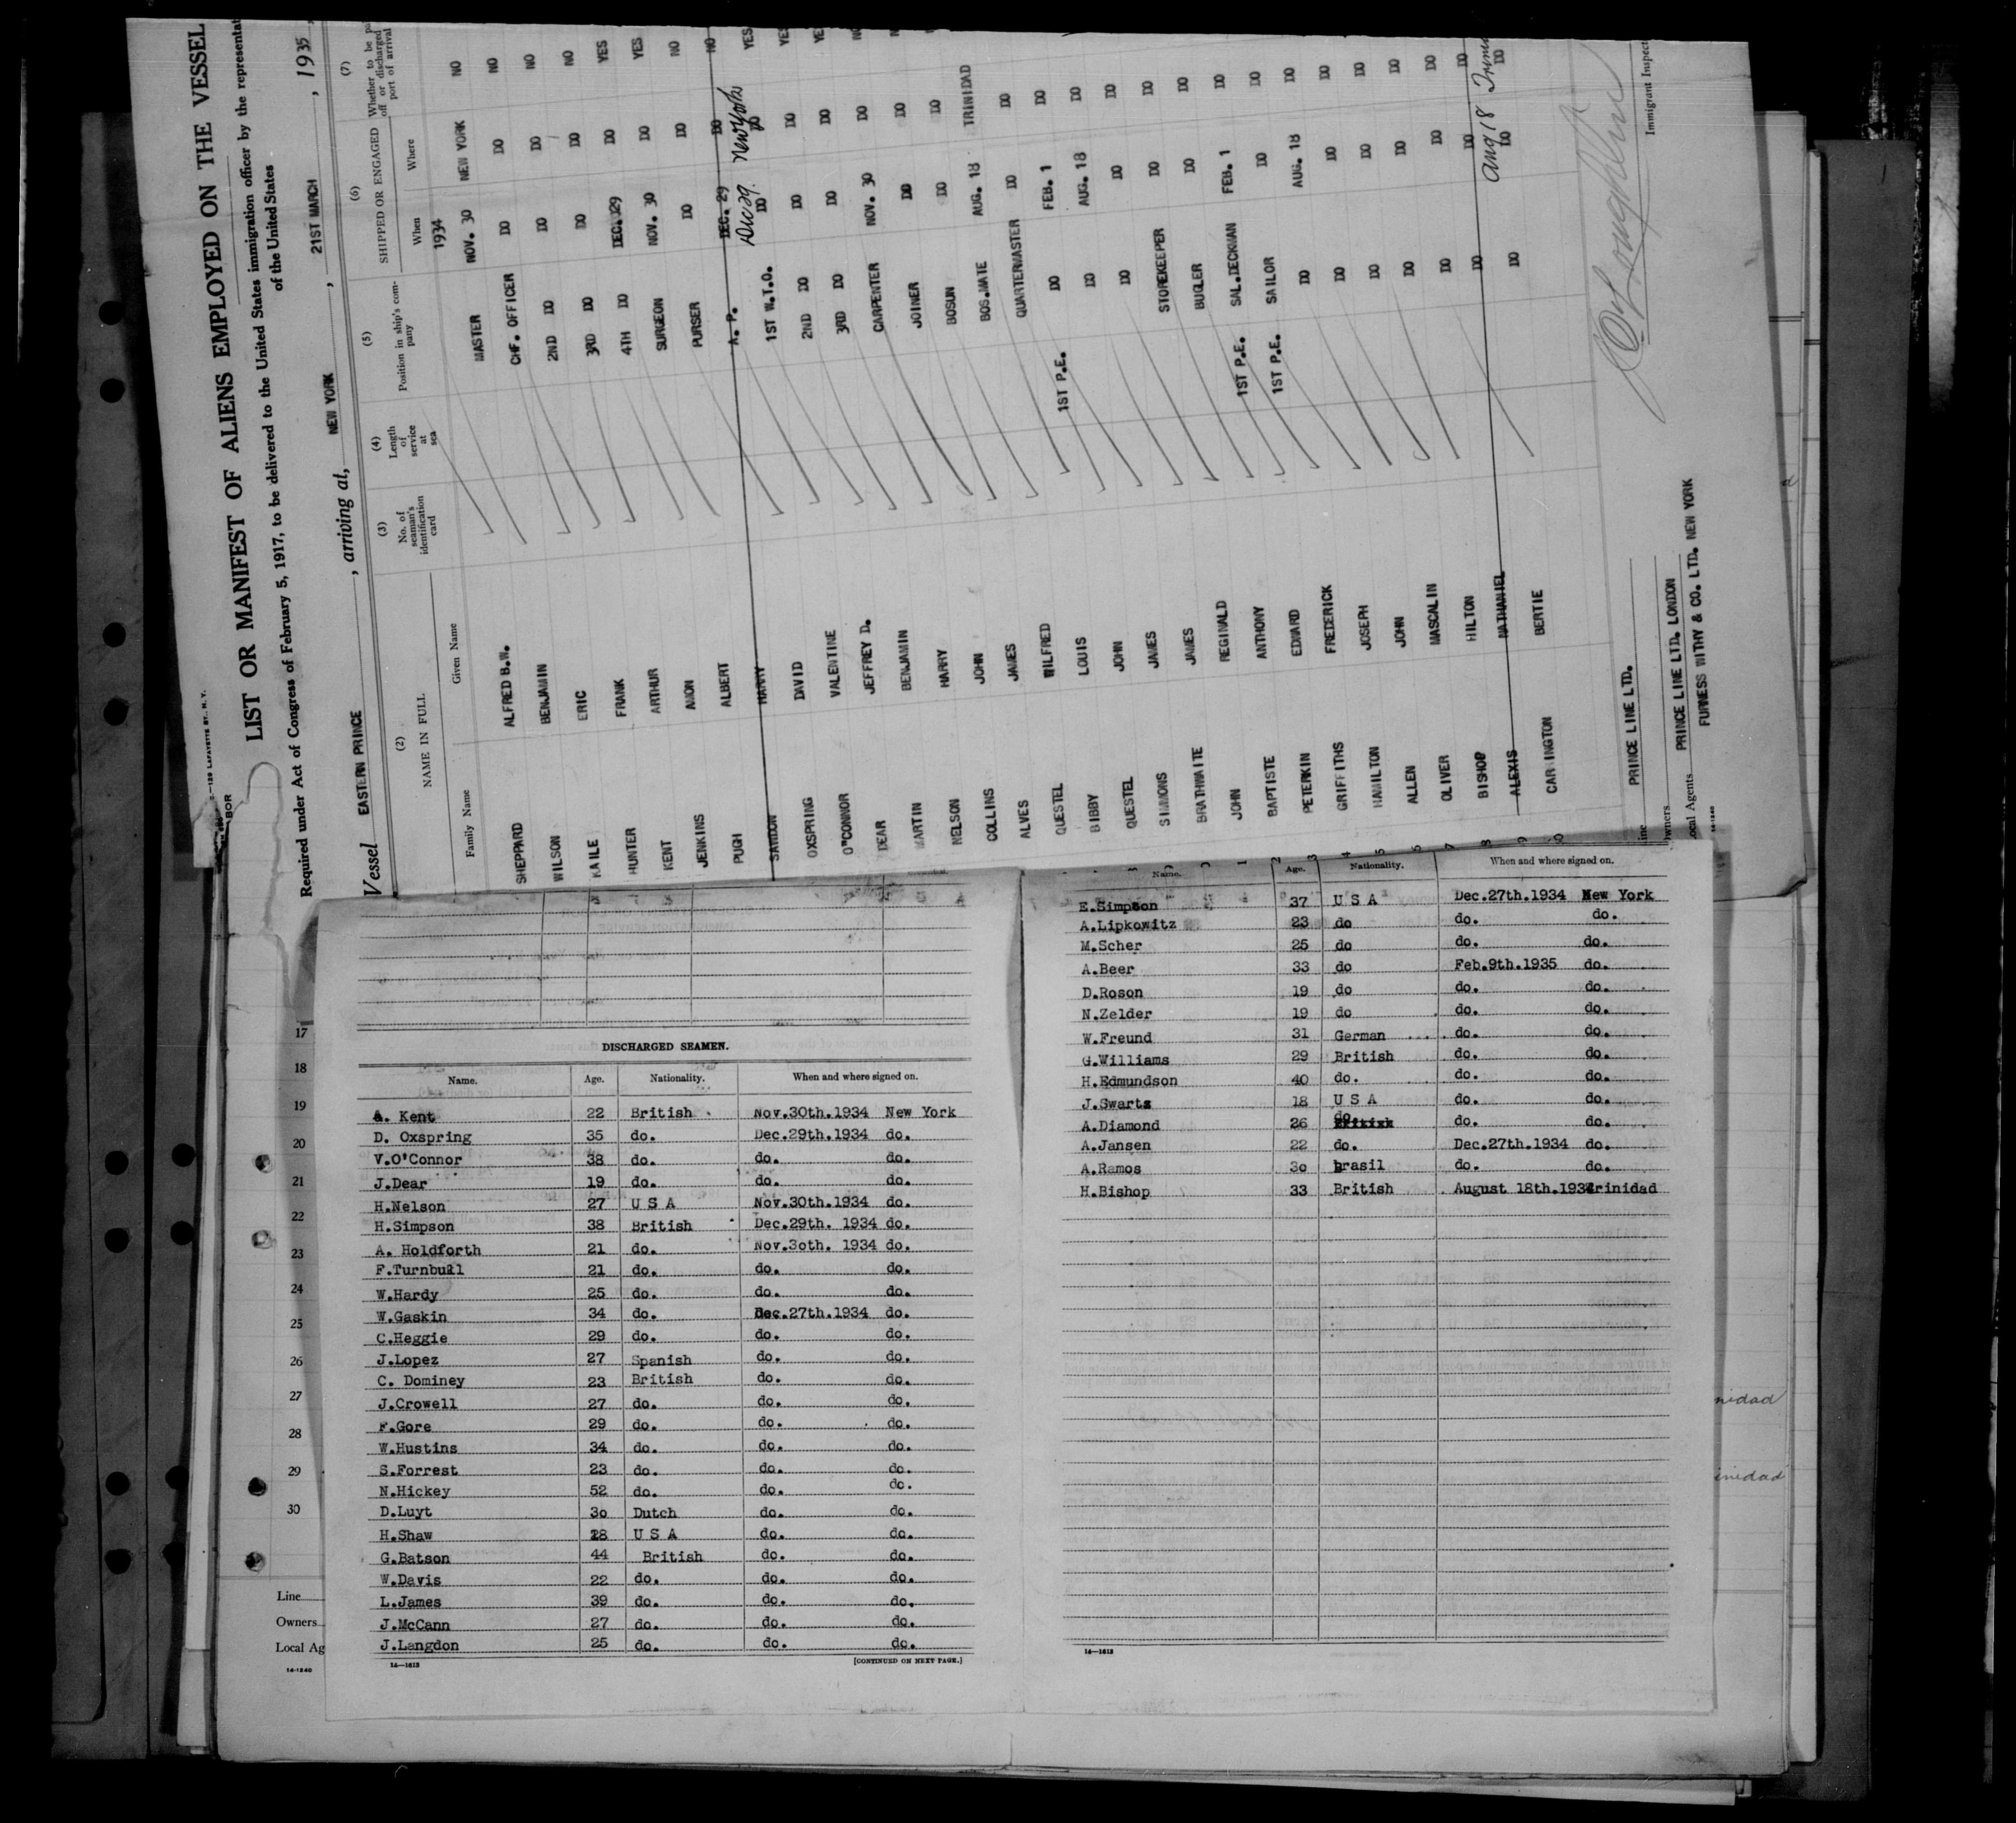 LIST OR MANIFEST OF ALIENS EMPLOYED ON THE VESSEL
Required under Act of Congress of February 5, 1917, to be delivered to the United States immigration officer by the
of the United States
Vessel EASTERN PRINCE, arriving at, NEW YORK, 21ST MARCH, 1935
(2) (3) (4) (5) (6) (7)
NAME IN FULL No. of seaman's identification card Length of service at sea Position in ship's company SHIPPED OR ENGAGED Whether to be off or discharged port of arrival
Family Name Given Name When Where
1934
SHEPPARD ALFRED B.W. MASTER NOV. 30 NEW YORK NO
WILSON BENJAMIN CHF. OFFICER DO DO NO
KAILE ERIC 2ND DO DO DO NO
HUNTER FRANK 3RD DO DO DO NO
KENT ARTHUR 4TH DO DEC. 29 DO YES
JENKINS AMON SURGEON NOV. 30 DO YES
PUGH ALBERT PURSER DO DO NO
SANDON HARRY A. P. DEC. 29 DO NO
Dec 29. New York
OXSPRING DAVID 1ST W.T.O. DO DO YES
O"CONNOR VALENTINE 2ND DO DO DO YES
DEAR JEFFREY D. 3RD DO DO DO YES
MARTIN BENJAMIN CARPENTER NOV. 30 DO
NELSON HARRY JOINER DO DO
COLLINS JOHN BOSUN DO DO
ALVES JAMES BOS.MATE AUG. 18 TRINIDAD
QUESTEL WILFRED QUARTERMASTER DO DO
BIBBY LOUIS 1ST P.E. DO FEB. 1 DO
QUESTEL JOHN DO AUG. 18 DO
SIMMONS JAMES DO DO DO
BRATHWAITE JAMES STOREKEEPER DO DO
JOHN REGINALD BUGLER DO DO
BAPTISTE ANTHONY 1ST P.E. SAL.DECKMAN FEB. 1 DO
PETERKIN EDWARD 1ST P.E. SAILOR DO DO
GRIFFITHS FREDERICK DO AUG. 18 DO
HAMILTON JOSEPH DO DO DO
ALLEN JOHN DO DO DO
OLIVER MASCALIN DO DO DO
BISHOP HILTON DO DO DO
ALEXIS NATHANIEL DO DO DO
Aug 18
CARRINGTON BERTIE DO DO DO
PRINCE LINE LTD.
PRINCE LINE LTD. LONDON
Local Agents FURNESS WITHY & CO. LTD. NEW YORK
Immigrant Inspect
17
18
19
20
21
22
23
24
25
26
27
28
29
30
Line
Owners
Local Ag
14-1240
DISCHARGED SEAMEN.
Name. Age. Nationality. When and where signed on.
A. Kent 22 British Nov.30th.1934 New York
D. Oxspring 35 do. Dec.29th.1934 do.
V.O'Connor 38 do. do. do.
J.Dear 19 do. do. do.
H.Nelson 27 U S A Nov.30th.1934 do.
H.Simpson 38 British Dec.29th. 1934 do.
A. Holdforth 21 do. Nov.3oth. 1934 do.
F.Turnbull 21 do. do. do.
W.Hardy 25 do. do. do.
W.Gaskin 34 do. Dec.27th.1934 do.
C.Heggie 29 do. do. do.
J.Lopez 27 Spanish do. do.
C. Dominey 23 British do. do.
J.Crowell 27 do. do. do.
F.Gore 29 do. do. do.
W.Hustins 34 do. do. do.
S.Forrest 23 do. do. do.
N.Hickey 52 do. do. do.
D.Luyt 3o Dutch do. do.
H.Shaw 28 U S A do. do.
G.Batson 44 British do. do.
W.Davis 22 do. do. do.
L.James 39 do. do. do.
J.McCann 27 do. do. do.
J.Langdon 25 do. do. do.
14—1613 [CONTINUED ON NEXT PAGE.]
Name. Age. Nationality. When and where signed on.
E.Simpson 37 U S A Dec.27th.1934 New York
A.Lipkowitz 23 do do. do.
M.Scher 25 do do. do.
A.Beer 33 do Feb.9th.1935 do.
D.Roson 19 do do. do.
N.Zelder 19 do do. do.
W.Freund 31 German do. do.
G.Williams 29 British do. do.
H.Edmundson 40 do. do. do.
J.Swartz 18 U S A do. do.
A.Diamond 26 do do. do.
A.Jansen 22 do. Dec.27th.1934 do.
A.Ramos 3o Brasil do. do.
H.Bishop 33 British August 18th.1934 Trinidad
14—1613
nidad
inidad